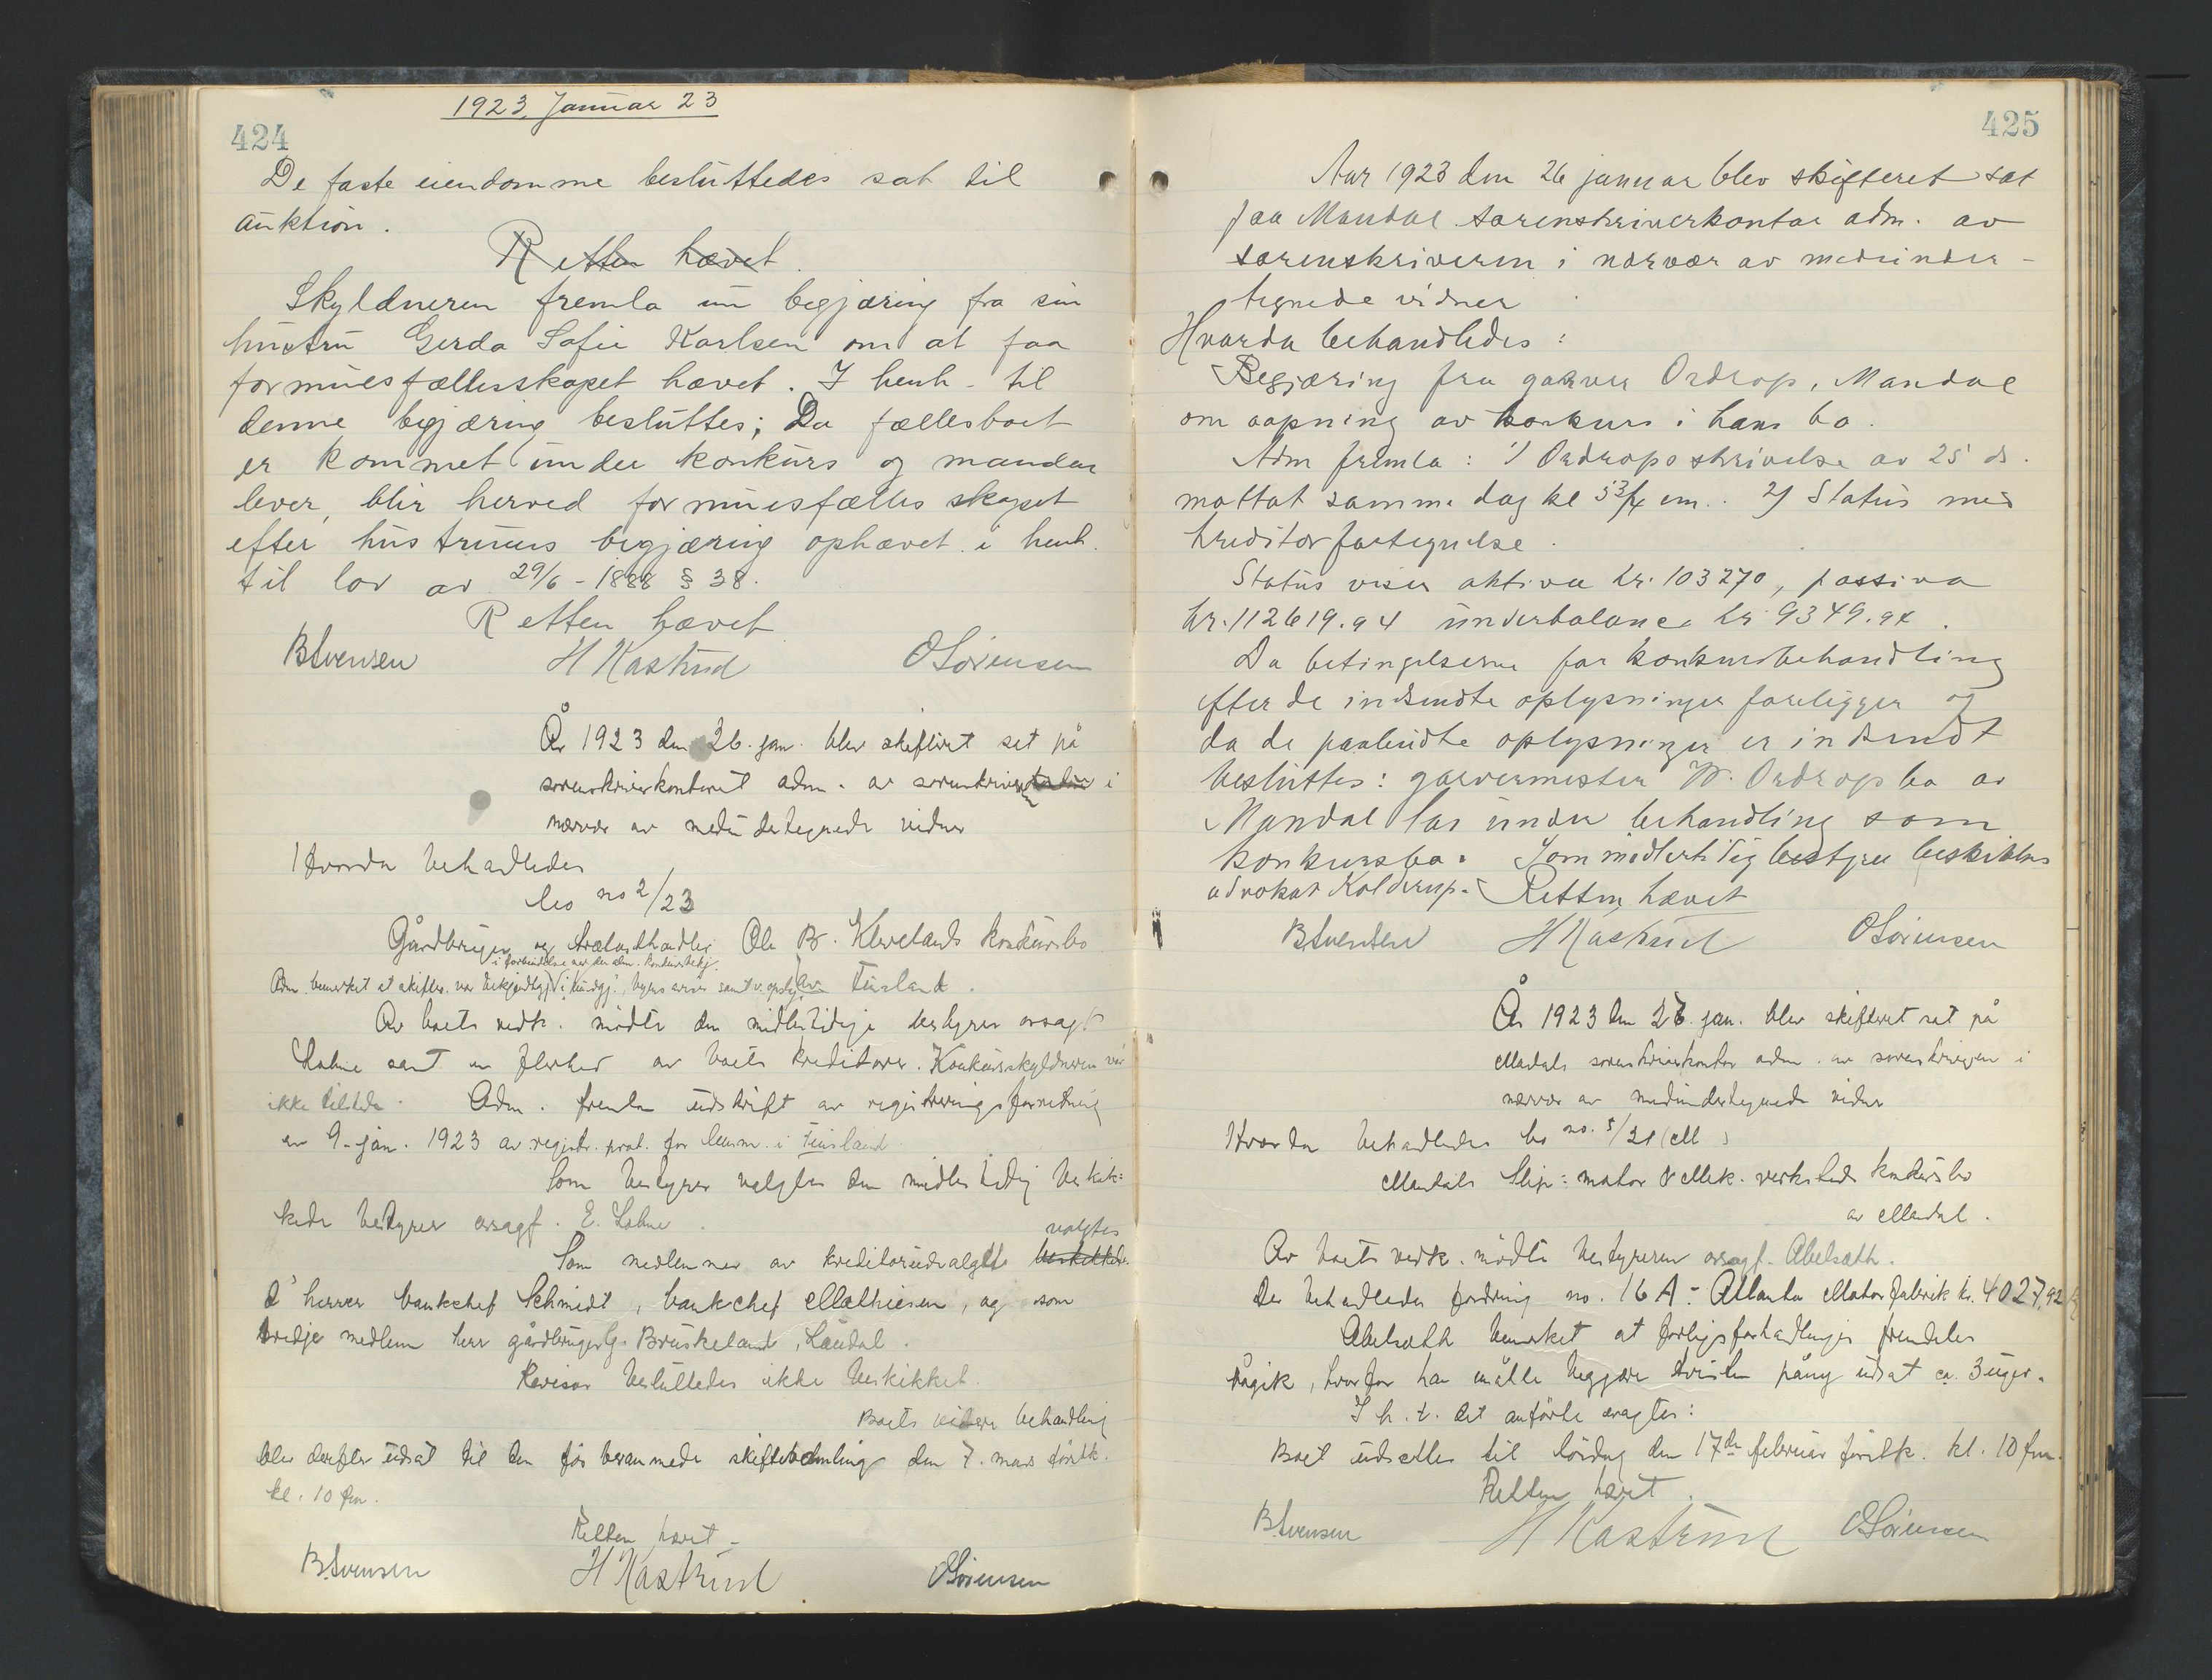 1923 Januar 23
424
De faste eiendomme besluttedes sat til
auktion.
Retten hævet.
Skyldneren fremla en begjæring fra sin
hustru Gerda Sofie Karlsen om at faa
formuesfællesskapet hævet. I henh. til
denne begjæring besluttes; Da fællesboet
er kommet under konkurs og manden
lever, blir herved formuesfællesskapet
efter hustruens begjæring ophævet i henh.
til lov av 29/6-1888 § 38.
Retten hævet
B Svensen H Kastrud O Sørensen
År 1923 den 26. jan. blev skifteret sat på
sorenskriverkontoret adm. av sorenskriveren i
nærvær av medundertegnede vidner
Hvorda behandledes
bo no 2/23
Gårdbruger og trælasthandler Ole B. Klevelands konkursbo
i forbindelse med den alm. konkursbekj.
Adm. bemerket at skiftes. var bekjendtgj. i kundgj. av Finsland.
Av boets vedk. mødte den midlertidige bestyrer orsagf.
Lohne samt en flerhed av boets kreditorer. Konkursskyldneren var
ikke tilstede. Adm. fremla udskrift av registreringsforretning
av 9. jan. 1923 av registr. prot. for lensm. i Finsland
Som bestyrer valgtes den midlertidig beskik=
kede bestyrer orsagf. E. Lohne.
valgtes
Som medlemmer av kreditorudvalget beskikkedes
d'herrer bankchef Schmidt, bankchef Mathiesen, og som
tredje medlem herr gårdbruger G. Bruskeland, Laudal.
Revisor besluttedes ikke beskikket.
Boets videre behandling
blev derefter udsat til den før berammede skiftesamling den 7. mars førstk.
kl. 10 fm.
Retten hævet.
B. Svensen H Kastrud O Sørensen
425
Aar 1923 den 26 januar blev skifteret sat
paa Mandal sorenskriverkontor adm. av
sorenskriveren i nærvær av medunder-
tegnede vidner
Hvorda behandledes:
Begjæring fra garver Ordrop, Mandal
om aapning av konkurs i hans bo.
Adm fremla: 1/ Ordrops skrivelse av 25 ds.
mottat samme dag kl 5 3/4 em.. 2/ Status med
kreditorfortegnelse.
Status viser aktiva kr. 103270, passiva
kr. 112619.94 underbalance kr 9349.94.
Da betingelserne for konkursbehandling
efter de indsendte oplysninger foreligger og
da de paabudte oplysninger er indsendt
besluttes: garvermester W. Ordrops bo av
Mandal tas under behandling som
konkursbo. Som midlertidig bestyrer beskikkes
advokat Kolderup. Retten hævet
B Svensen H Kastrud O Sørensen
År 1923 den 27. jan. blev skifteret sat på
Mandals sorenskriverkontor adm. av sorenskriveren i
nærvær av medundertegnede vidner
Hvorda behandledes bo no. 5/21 (M)
Mandals Slip: motor & Mek. verksteds konkursbo
av Mandal.
Av boets vedk. mødte bestyreren orsagf. Abelseth.
Der behandledes fordring no. 16 A: Atlanta Motorfabrik kr. 4027,92
Abelseth bemerket at forligsforhandlinger fremdeles
pågik, hvorfor han måtte begjære tvisten påny udsat ca. 3 uger.
I h. t. det anførte eragtes:
Boet udsættes til lørdag den 17de februar førstk. kl. 10 fm.
Retten hævet.
B. Svensen H Kastrud O Sørensen